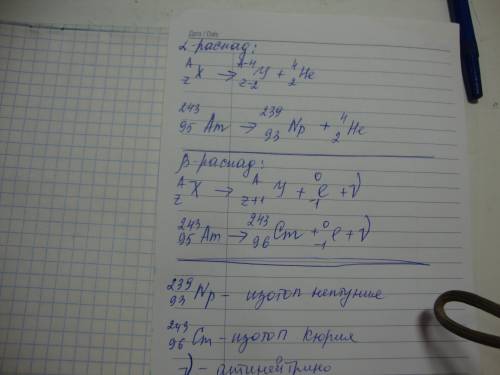 Data / Date
α-распад:
ᴬ_Z X → ᴬ⁻⁴_Z-2 Y + ⁴₂He
²⁴³₉₅Am → ²³⁹₉₃Np + ⁴₂He
β-распад:
ᴬ_Z X → ᴬ_Z+1 Y + ⁰₋₁e + ν̃
²⁴³₉₅Am → ²⁴³₉₆Cm + ⁰₋₁e + ν̃
²³⁹₉₃Np – изотоп нептуния
²⁴³₉₆Cm – изотоп кюрия
ν̃ – антинейтрино